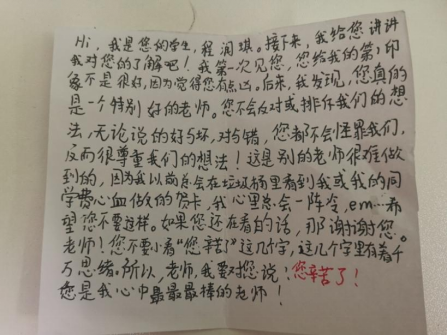 Hi,我是您的学生,程润琪。接下来,我给您讲讲
我对您的了解吧!我第一次见您,您给我的第一印
象不是很好,因为觉得您有点凶。后来,我发现,您真的
是一个特别好的老师。您不会反对或排斥我们的想
法,无论说的好与坏,对与错,您都不会怪罪我们,
反而很尊重我们的想法!这是别的老师很难做
到的,因为我以前总会在垃圾桶里看到我或我的同
学费心血做的贺卡,我心里会一阵冷,em…希
望您不要这样。如果您还在看的话,那谢谢您。
老师!您不要小看“您辛苦了”这几个字,这几个字里有着千
万思绪。所以,老师,我要对您说!您辛苦了!
您是我心中最最最棒的老师!